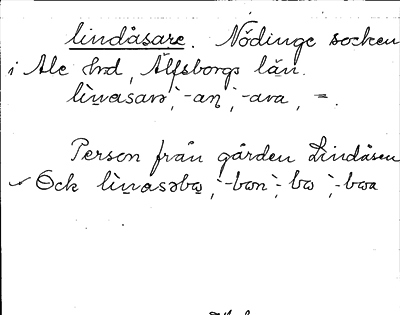 lindåsare. Nödinge socken
i Ale hrd, Älfsborgs län.
li̱ǹasarə, -aŋ, -ara, =.
Person från gården Lindåsen
Ock lìnasəbɷ, -bɷn, bɷ, -bɷa